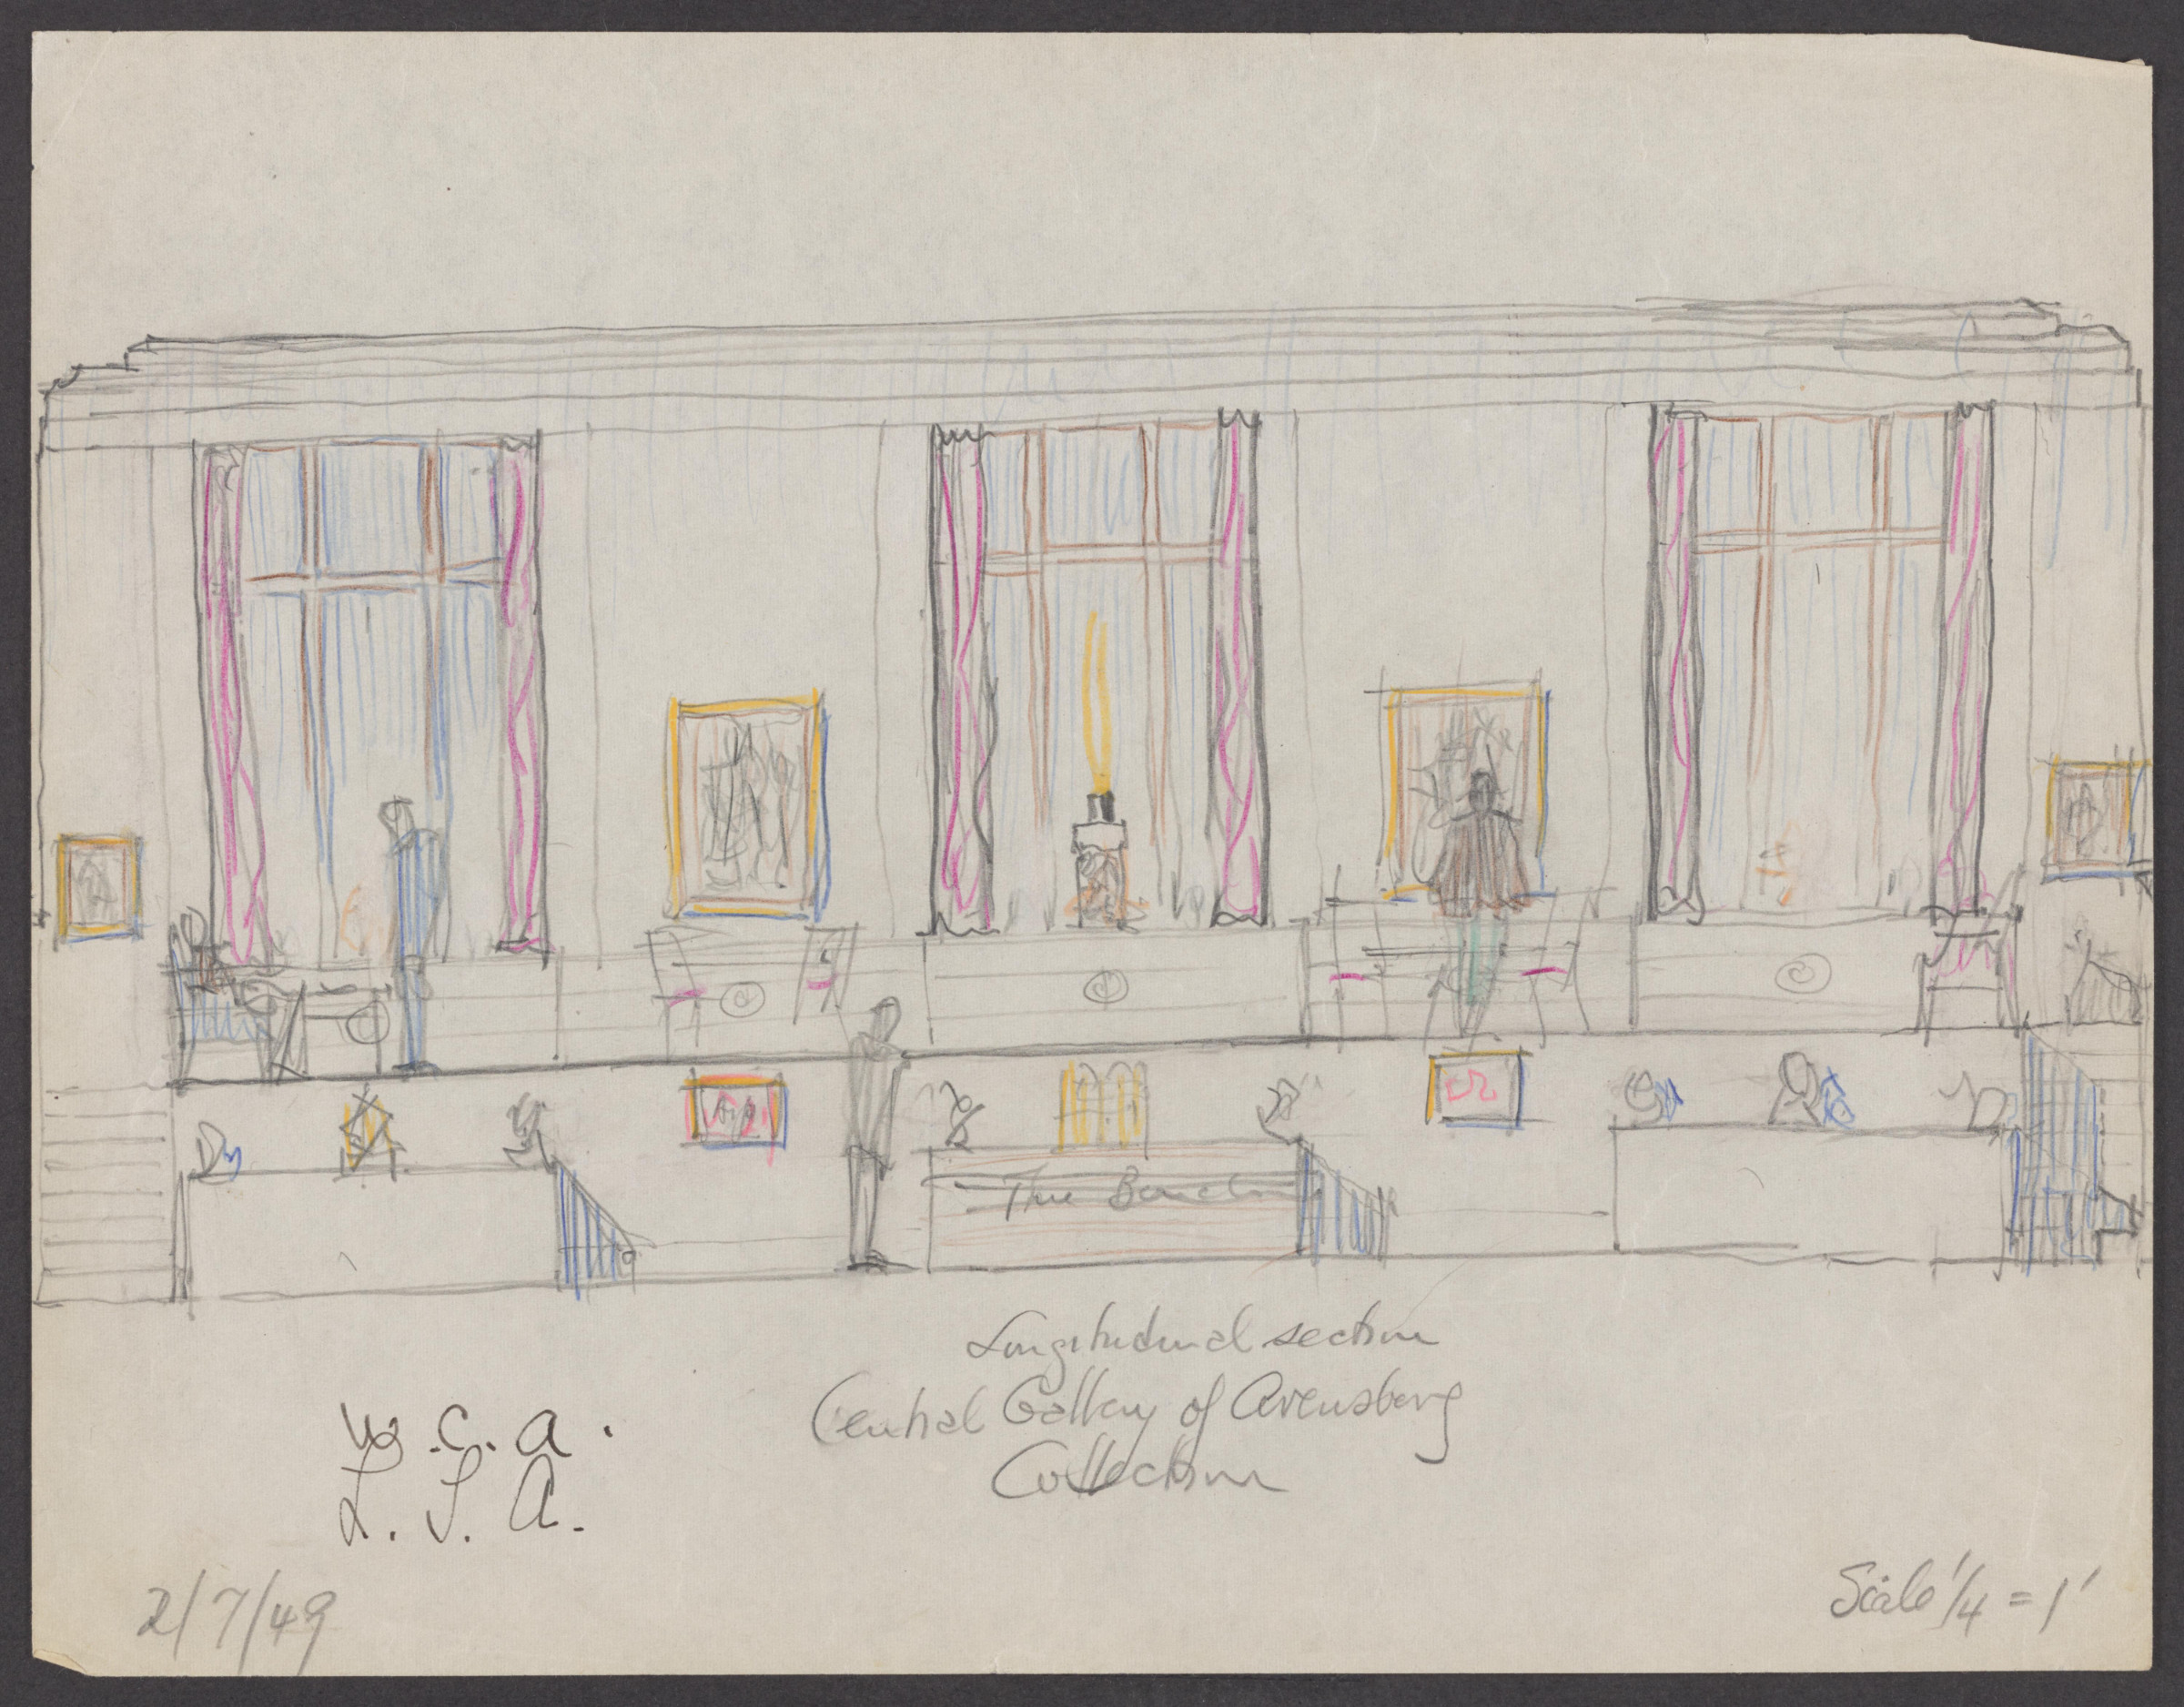 The Bench
Longitudinal section
Central Gallery of Arensberg
Collection
W.C.A.
L.S.A.
2/7/49
Scale 1/4 = 1'